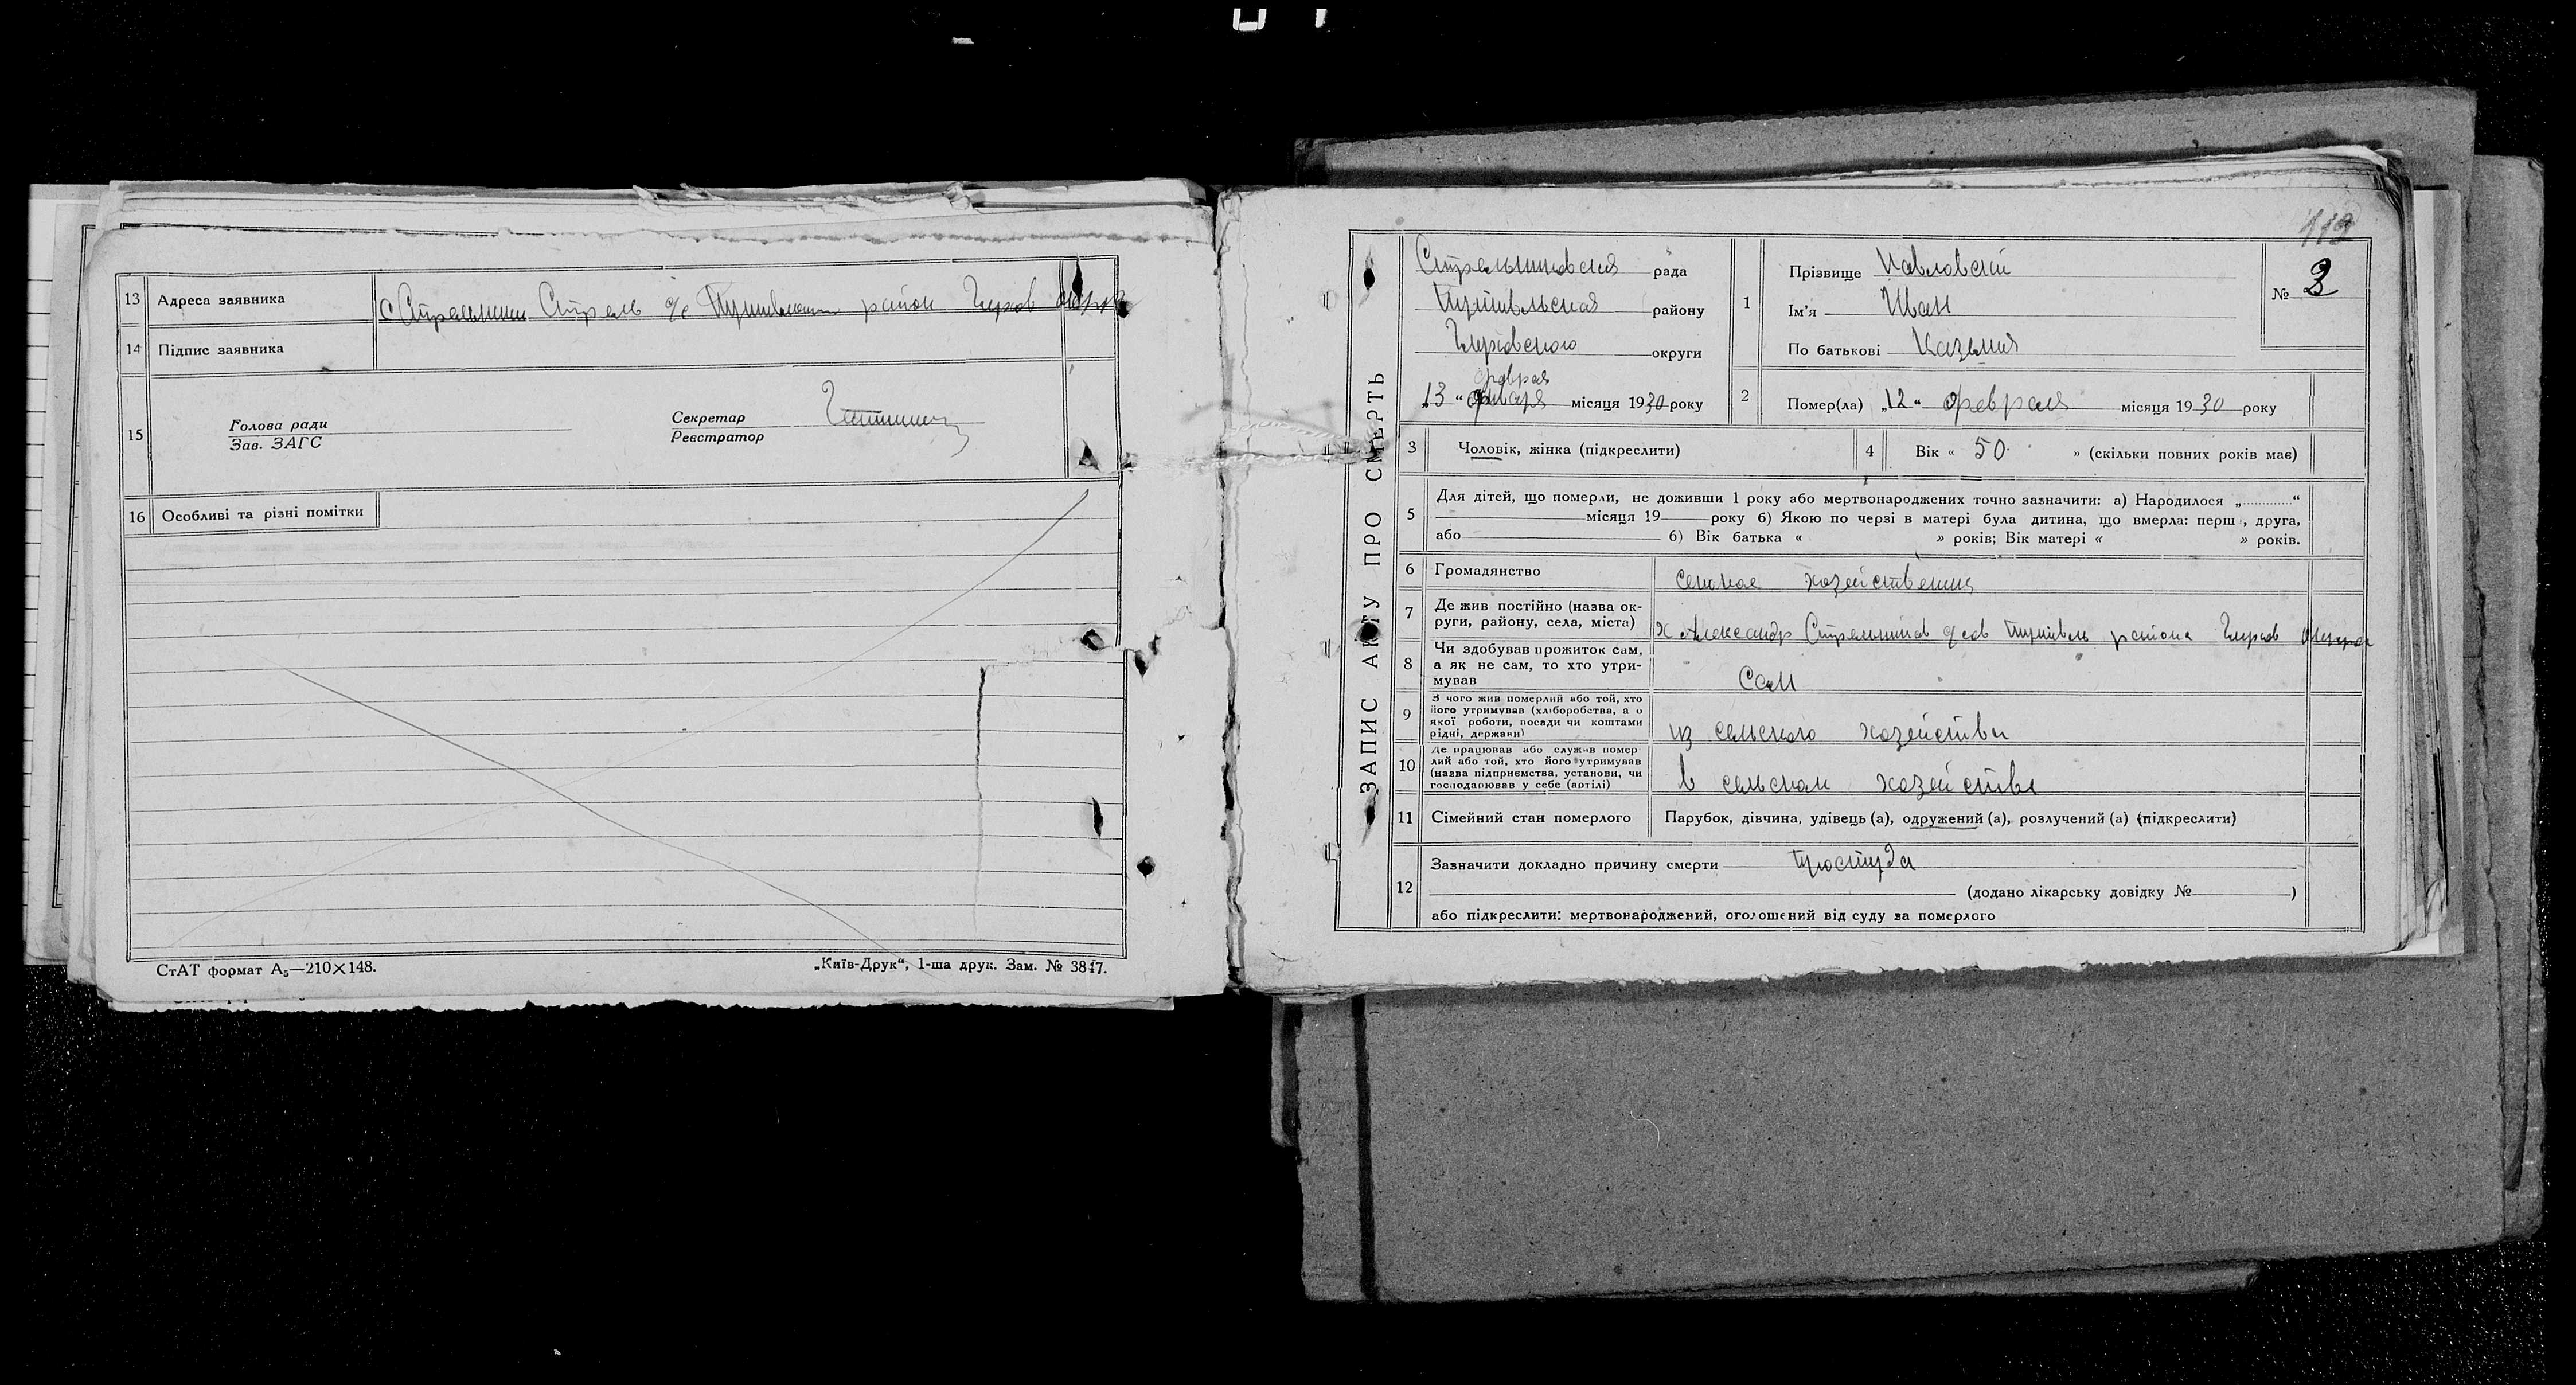 13 Адреса заявника
14 Підпис заявника
15 Голова ради
Зав. ЗАГС
Секретар
Реєстратор
16 Особливі та різні помітки
СтАТ формат А₅—210×148.
„Київ-Друк“, 1-ша друк. Зам. № 3847.
112
ЗАПИС АКТУ ПРО СМЕРТЬ
рада
району
Глуховского округи
„13“ февраля місяця 1930 року
1 Прізвище Павловский
Ім'я Иван
По батькові
№ 3
2 Помер(ла) „12“ февраля місяця 1930 року
3 Чоловік, жінка (підкреслити)
4 Вік « 50 » (скільки повних років має)
5 Для дітей, що померли, не доживши 1 року або мертвонароджених точно зазначити: а) Народилося „ “
місяця 19 року б) Якою по черзі в матері була дитина, що вмерла: перша, друга,
або б) Вік батька « » років; Вік матері « » років.
6 Громадянство
7 Де жив постійно (назва ок-
руги, району, села, міста) х Александр района Глухов
8 Чи здобував прожиток сам,
а як не сам, то хто утри-
мував Сам
9 З чого жив померлий або той, хто
його утримував (хліборобства, а о
якої роботи, посади чи коштами
рідні, держави) из сельского хозейства
10 Де працював або служив помер
лий або той, хто його утримував
(назва підприємства, установи, чи
господарював у себе (артілі) в сельском хозействе
11 Сімейний стан померлого Парубок, дівчина, удівець (а), одружений (а), розлучений (а) (підкреслити)
12 Зазначити докладно причину смерти простуда
(додано лікарську довідку № )
або підкреслити: мертвонароджений, оголошений від суду за померлого